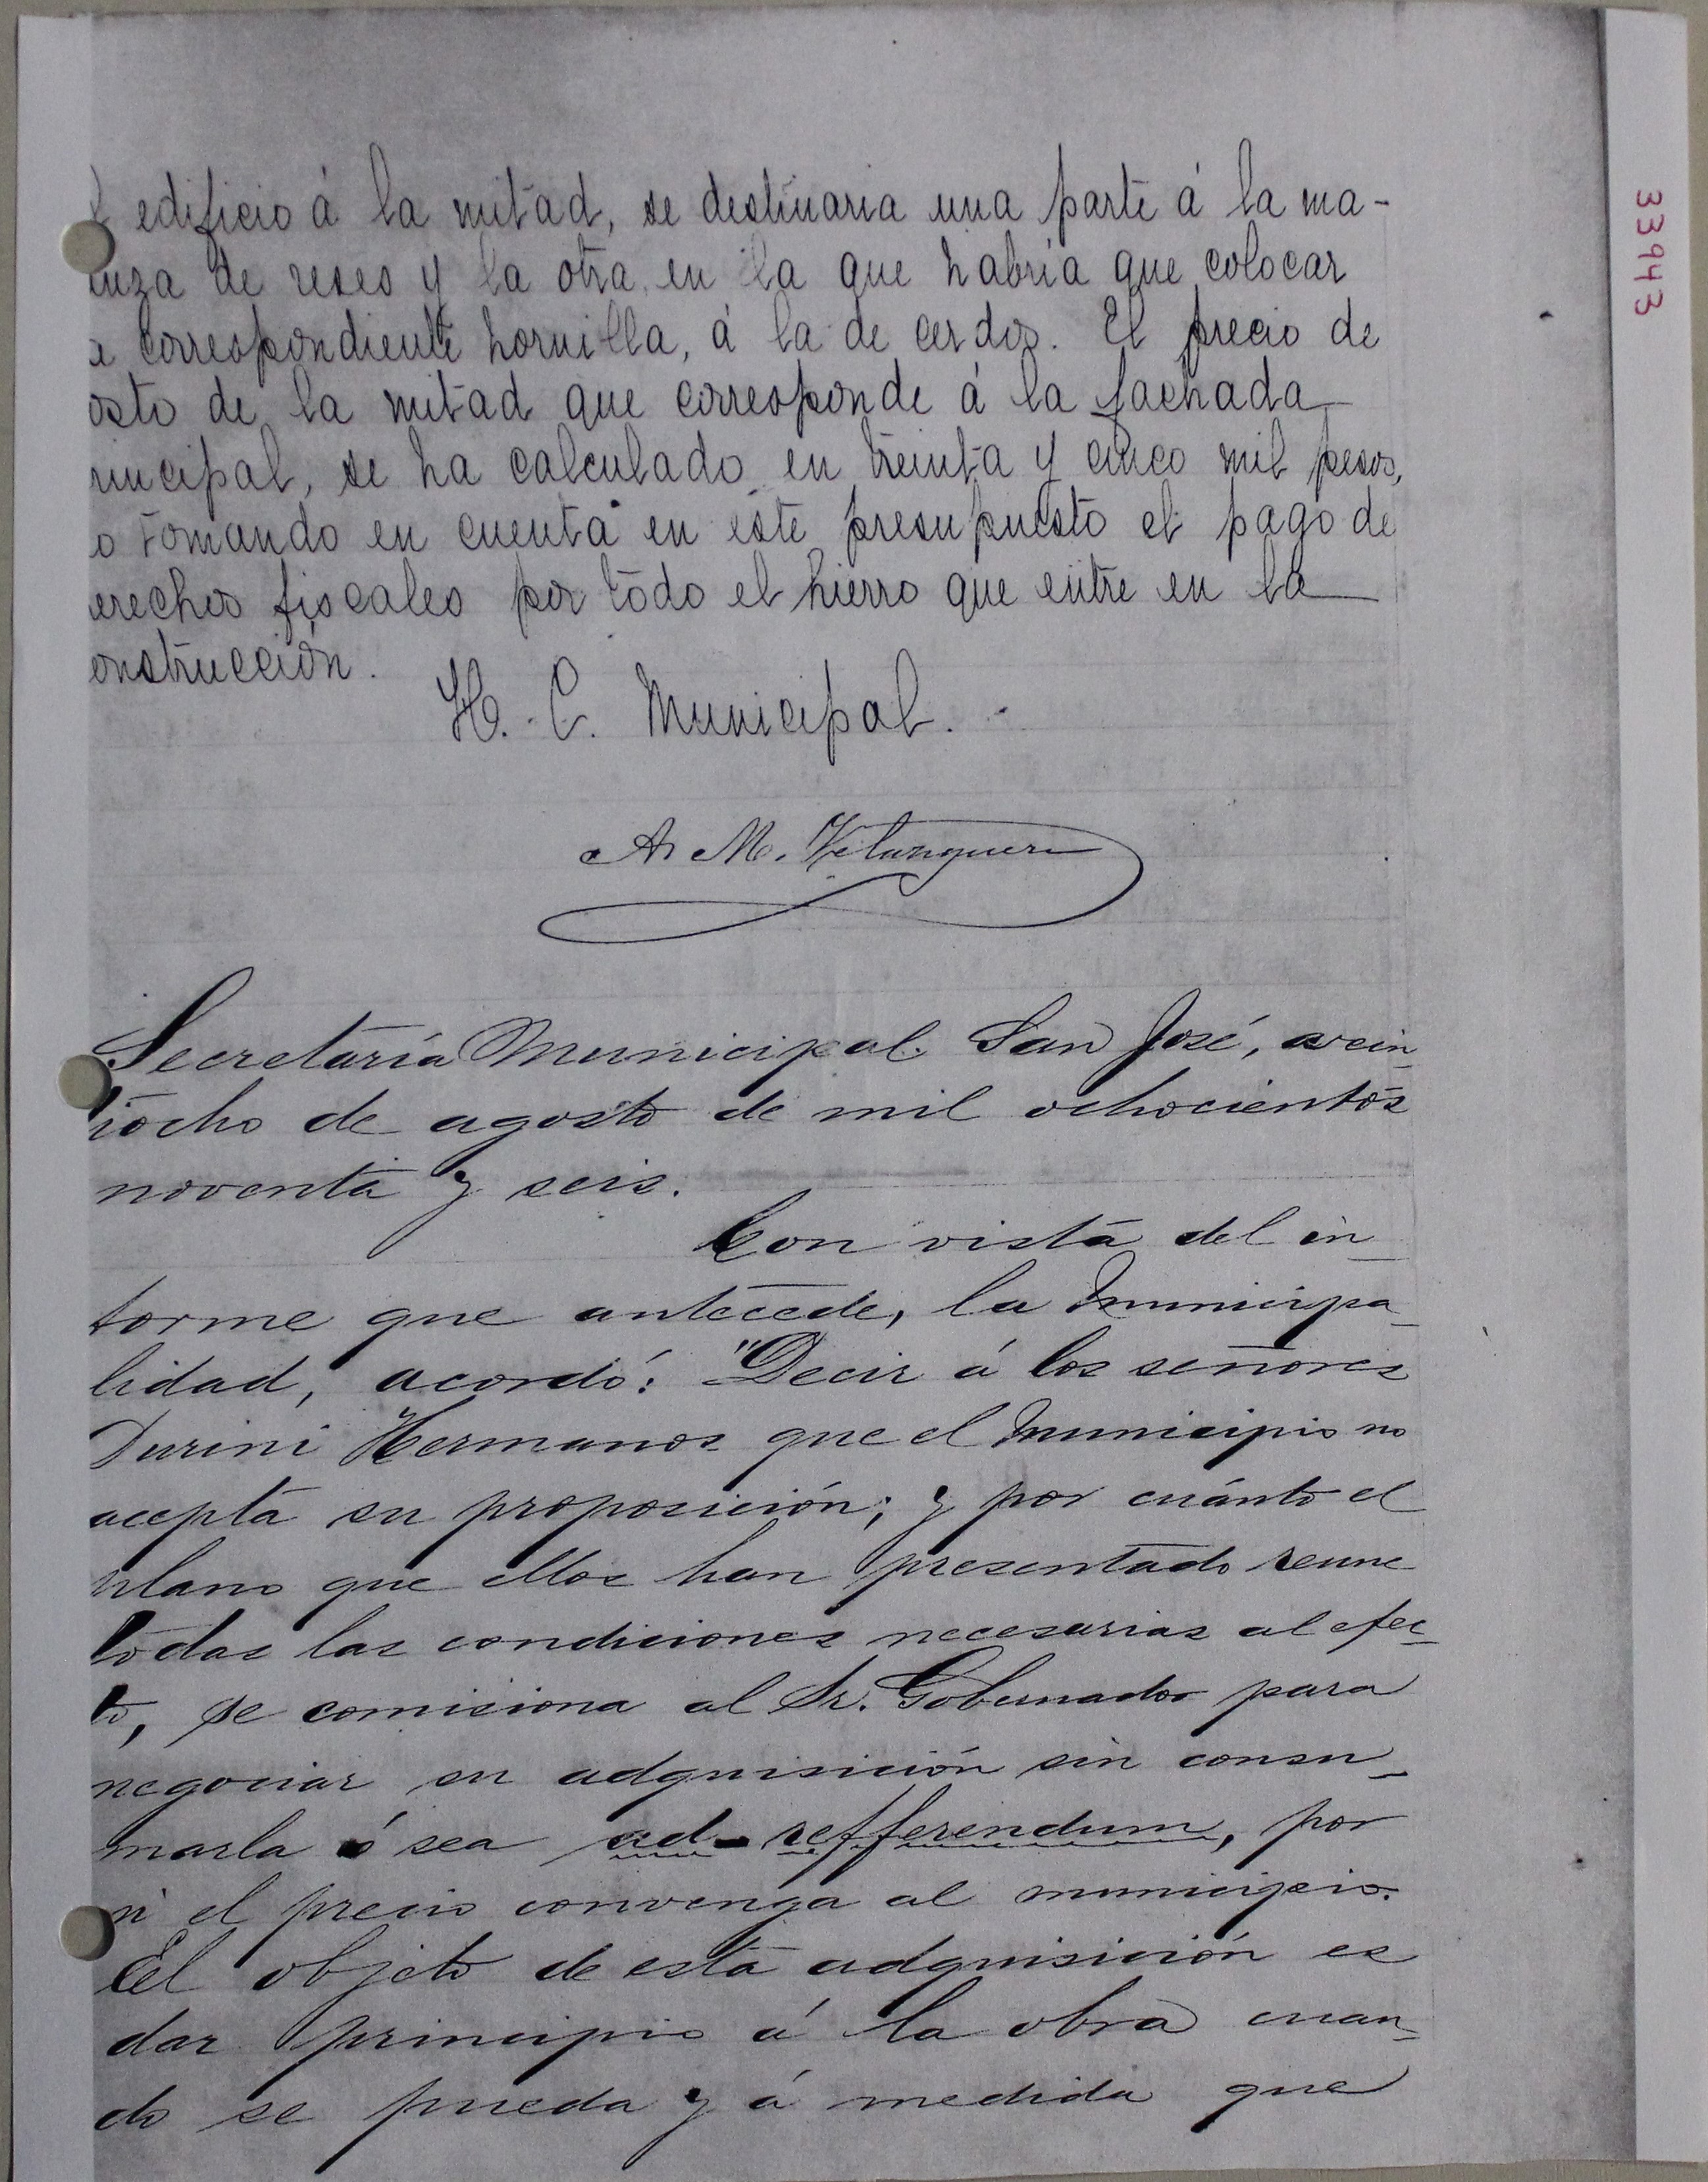 edificio á la mitad, se destinaria una parte á la ma-
nza de reses y la otra, en la que habria que colocar
a correspondiente hornilla, á la de cerdos. El precio de
osto de la mitad que corresponde á la fachada
rincipal, se ha calculado en treinta y cinco mil pesos,
o tomando en cuenta en este presupuesto el pago de
erechos fiscales por todo el hierro que entre en la
onstrucción.
H. C. Municipal.
A. M. Velazquez
Secretaría Municipal. San José, vein
tiocho de agosto de mil ochocientos
noventa y seis.
Con vista del in
forme que antecede, la Municipa
lidad, acordó: "Decir á los señores
Durini Hermanos que el Municipio no
acepta su proposición; y por cuánto el
plano que ellos han presentado reune
todas las condiciones necesarias al efec
to, se comisiona al Sr. Gobernador para
negociar su adquisición sin consu
marla ó sea ad-refferendum, por
si el precio convenga al municipio.
El objeto de esta adquisición es
dar principio á la obra cuan
do se pueda y á medida que
33943